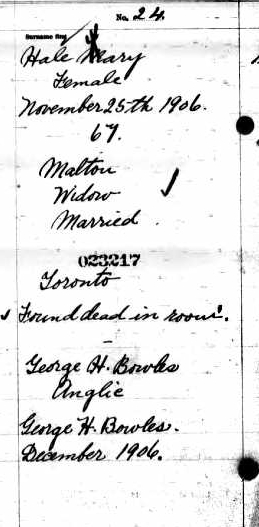 No. 24.
Surname first
Hale Mary
Female
November 25th 1906.
67.
Malton
Widow
Married.
023217
Toronto
Found dead in room.
George H. Bowles
Anglic
George H. Bowles.
December 1906.